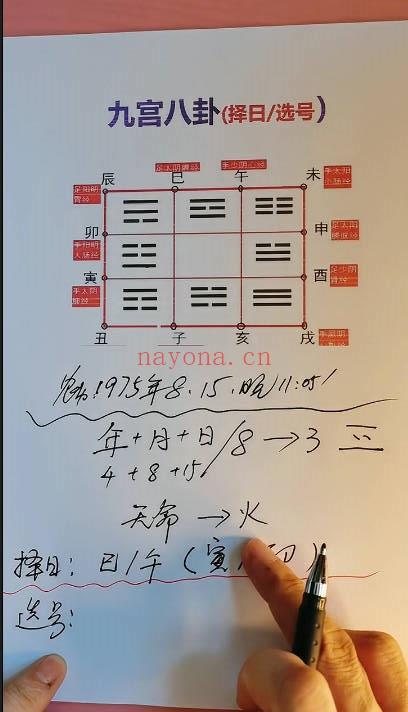 九宫八卦(择日/选号)
足太阴脾经 手少阴心经
辰 巳 午 未
足阳明胃经 手太阳小肠经
卯 申
手阳明大肠经 足太阳膀胱经
寅 酉
手太阴肺经 足少阴肾经
丑 子 亥 戌
nayona.cn
1975年8.15.晚11:05
年+月+日/8→3
4+8+15
天命→火
择日: 巳/午(寅/卯)
选号: